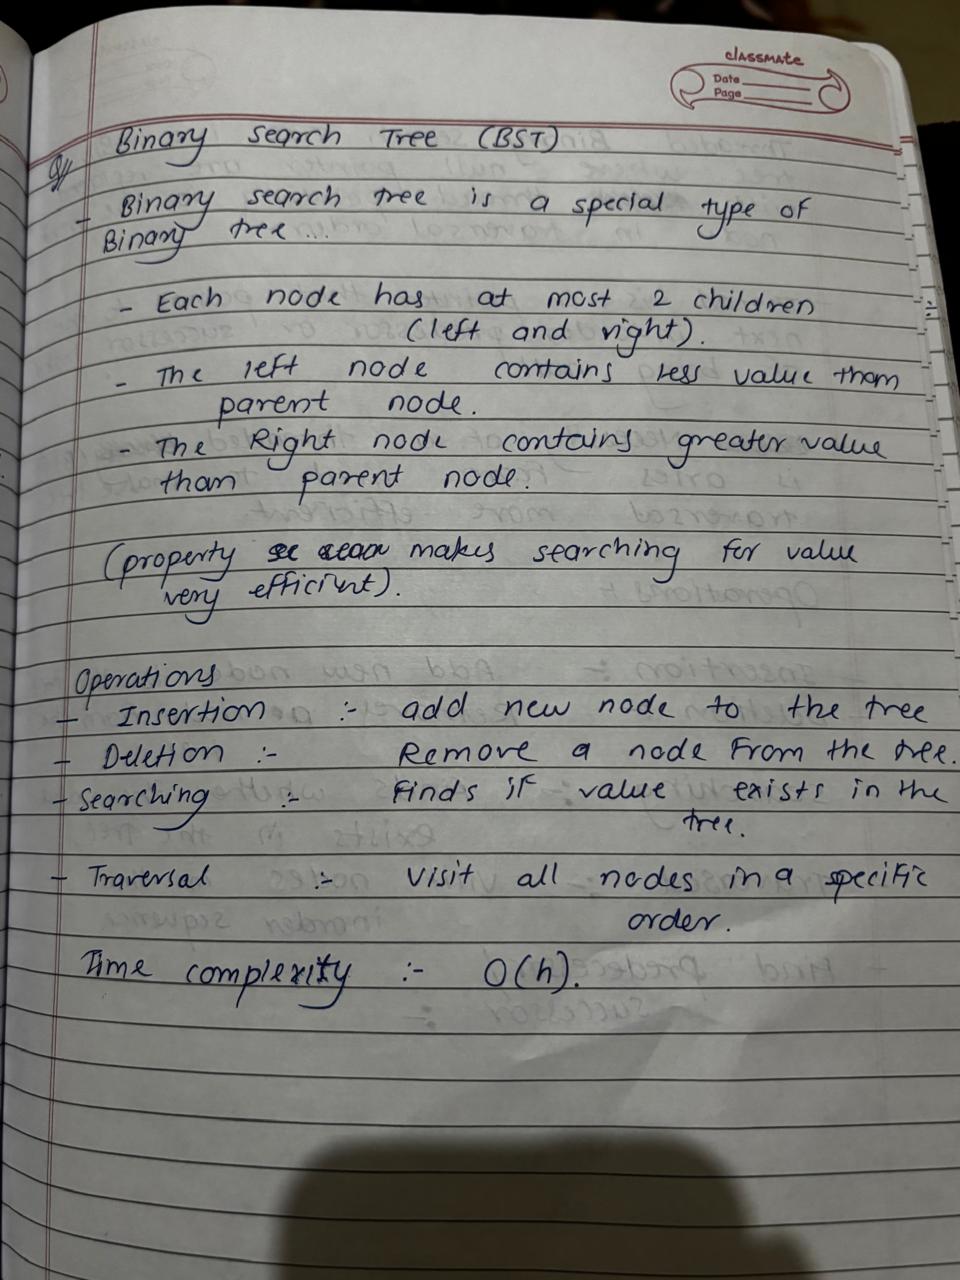 classmate
Date
Page
Binary search Tree (BST)
- Binary search tree is a special type of
Binary tree...
- Each node has at most 2 children
(left and right).
- The left node contains less value than
parent node.
- The Right node contains greater value
than parent node.
(property makes searching for value
very efficient).
Operations
- Insertion :- add new node to the tree
- Deletion :- Remove a node From the tree.
- Searching :- Finds if value exists in the
tree.
- Traversal :- visit all nodes in a specific
order.
Time complexity :- O(h).